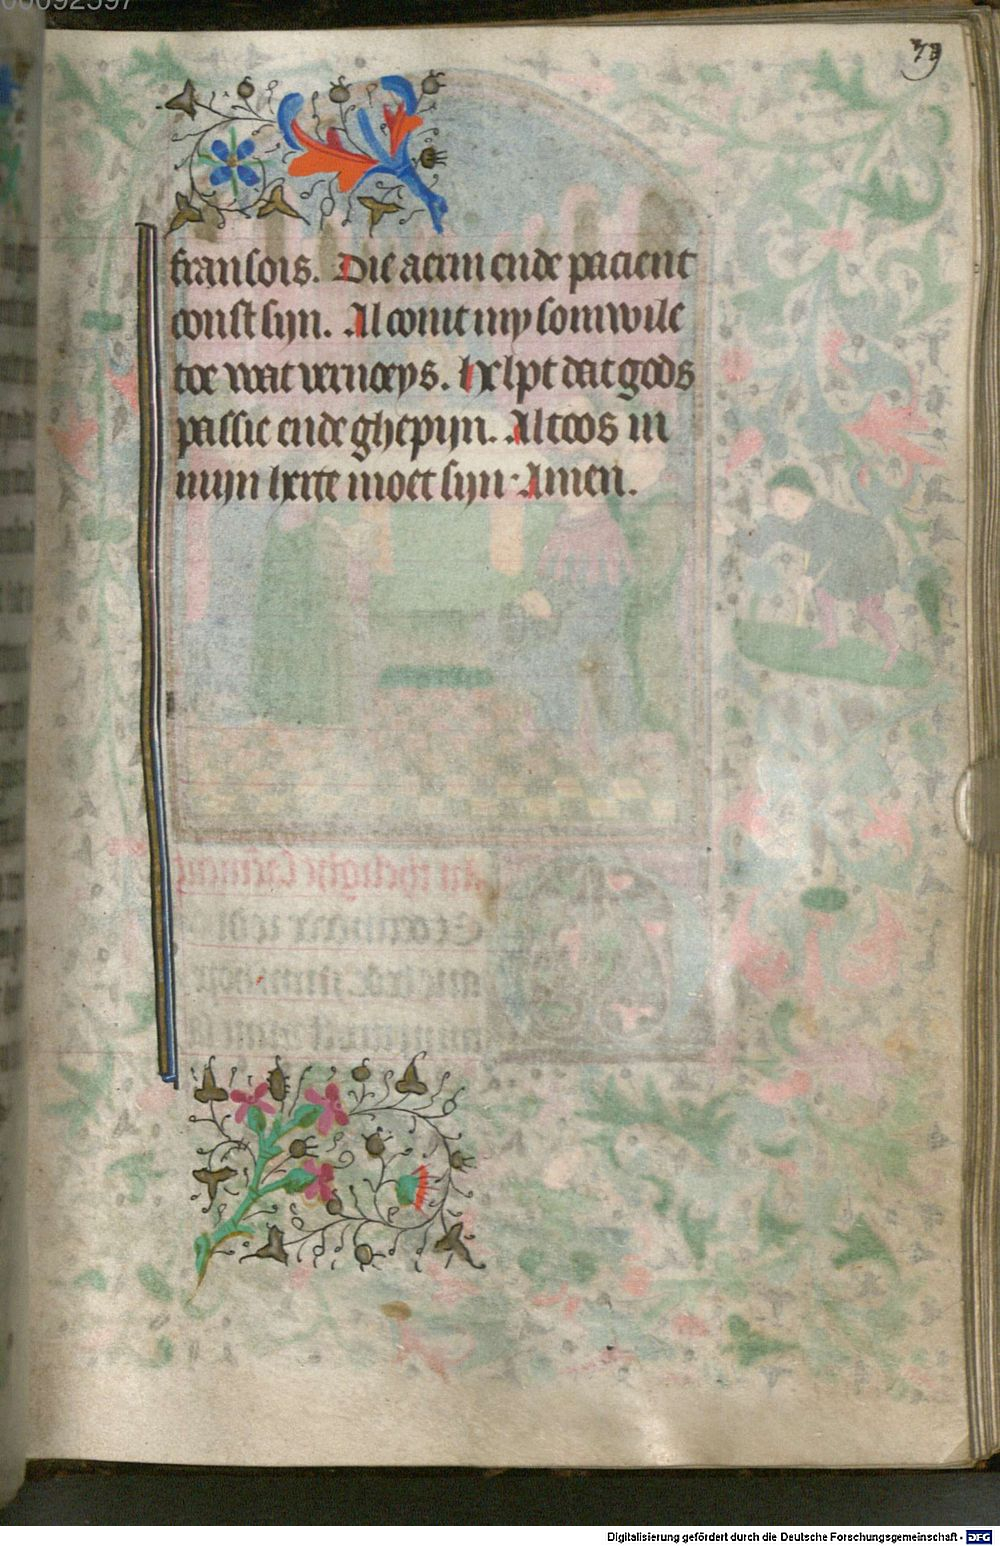 79
fransois. Die aerm ende pacient
const sijn. Al comt my somwile
toe wat vernoeys. Helpt dat gods
passie ende ghepijn. Altoos in
mijn herte moet sijn. Amen.
Digitalisierung gefördert durch die Deutsche Forschungsgemeinschaft - DFG